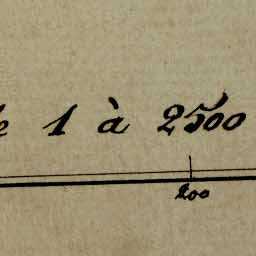 1 à 2500
200